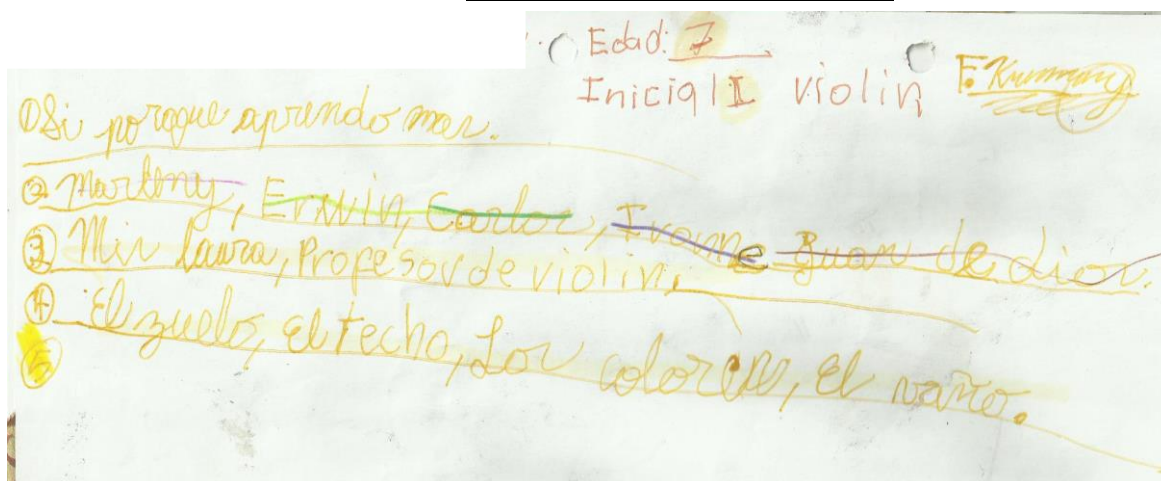 Edad: 7
Inicial I violin
① Si porque aprendo mas.
② Martiny, Erwin, Carlos, Ivonne Juan de dios.
③ Mis laura, Profesor de violin,
④ El zuelo, el techo, Los colores, el vaño.
⑤